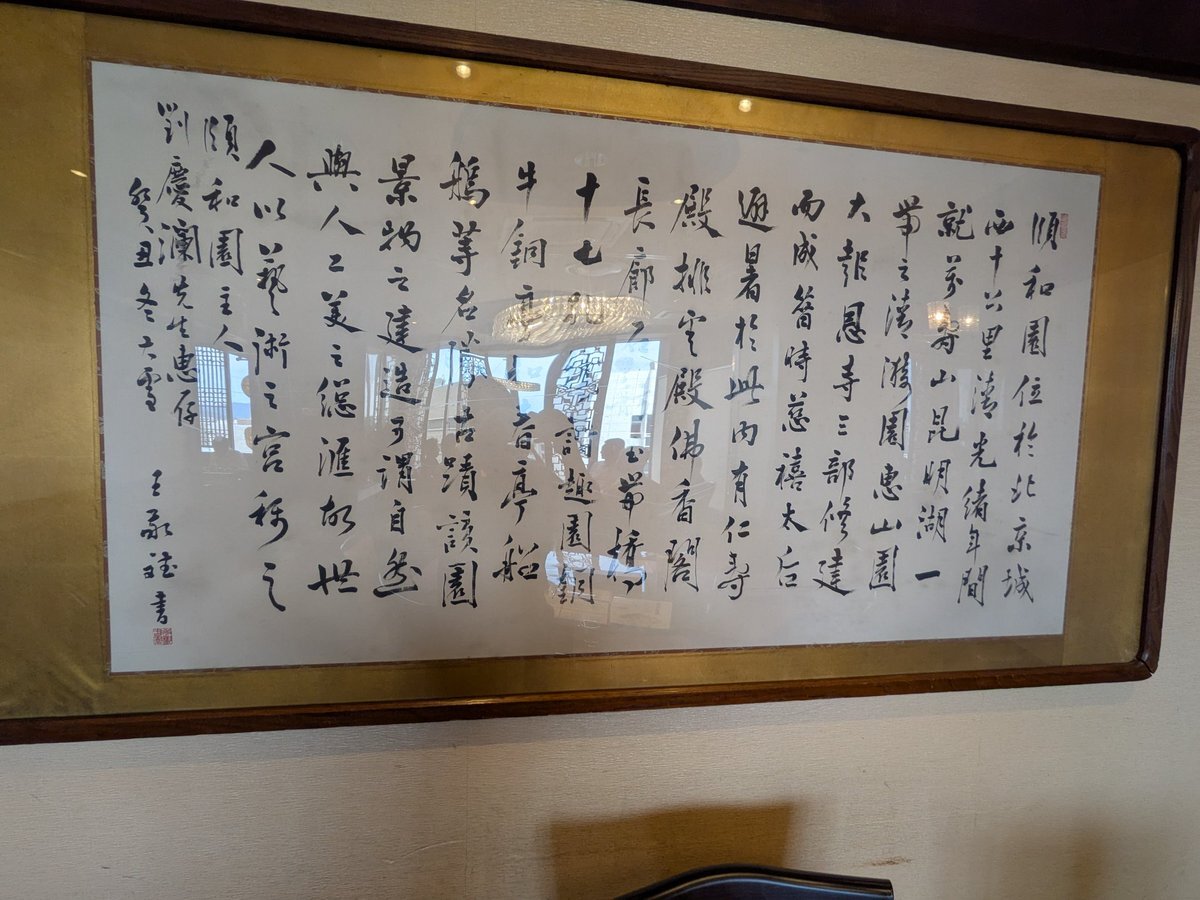 頤和園位於北京城
西十六里清光緒年間
就萬壽山昆明湖一
帶之清漪園惠山園
大報恩寺三部修建
而成當時慈禧太后
避暑於此內有仁壽
殿排雲殿佛香閣
長廊玉帶橋
十七孔諧趣園銅
牛銅亭春亭船
等名勝古蹟該園
景物之建造可謂自然
與人工美之總滙故世
人以藝術之宮稱之
頤和園主人
劉慶瀾先生惠存
癸丑冬大雪 王書